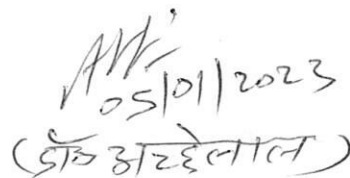 05/01/2023
(डॉ० अच्छेलाल)